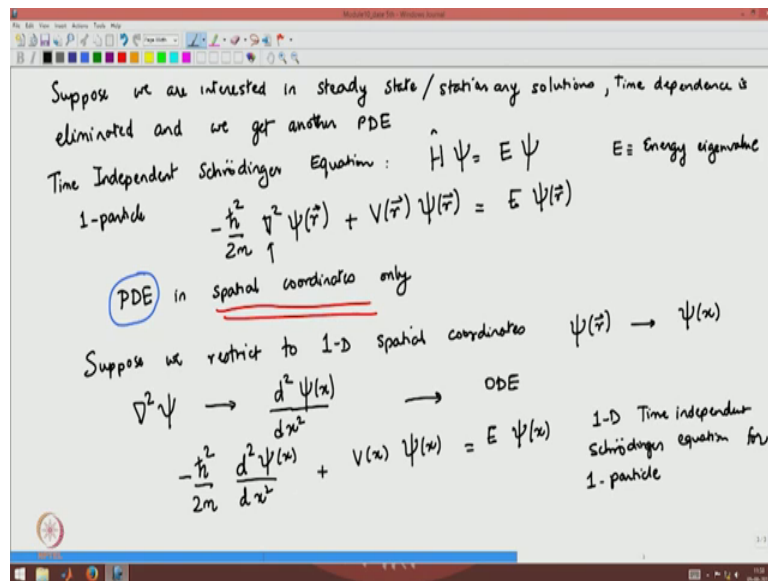 Module10_date 5th - Windows Journal
File Edit View Insert Actions Tools Help
Page Width
Suppose we are interested in steady state / stationary solutions, Time dependence is
eliminated and we get another PDE
Time Independent Schrödinger Equation : Ĥ Ψ = E Ψ E ≡ Energy eigenvalue
1-particle
-ℏ²/2m ∇² Ψ(r⃗) + V(r⃗) Ψ(r⃗) = E Ψ(r⃗)
↑
PDE in spatial coordinates only
Suppose we restrict to 1-D spatial coordinates Ψ(r⃗) → Ψ(x)
∇²Ψ → d²Ψ(x)/dx² → ODE
-ℏ²/2m d²Ψ(x)/dx² + V(x) Ψ(x) = E Ψ(x)
1-D Time independent
Schrödinger equation for
1-particle
NPTEL